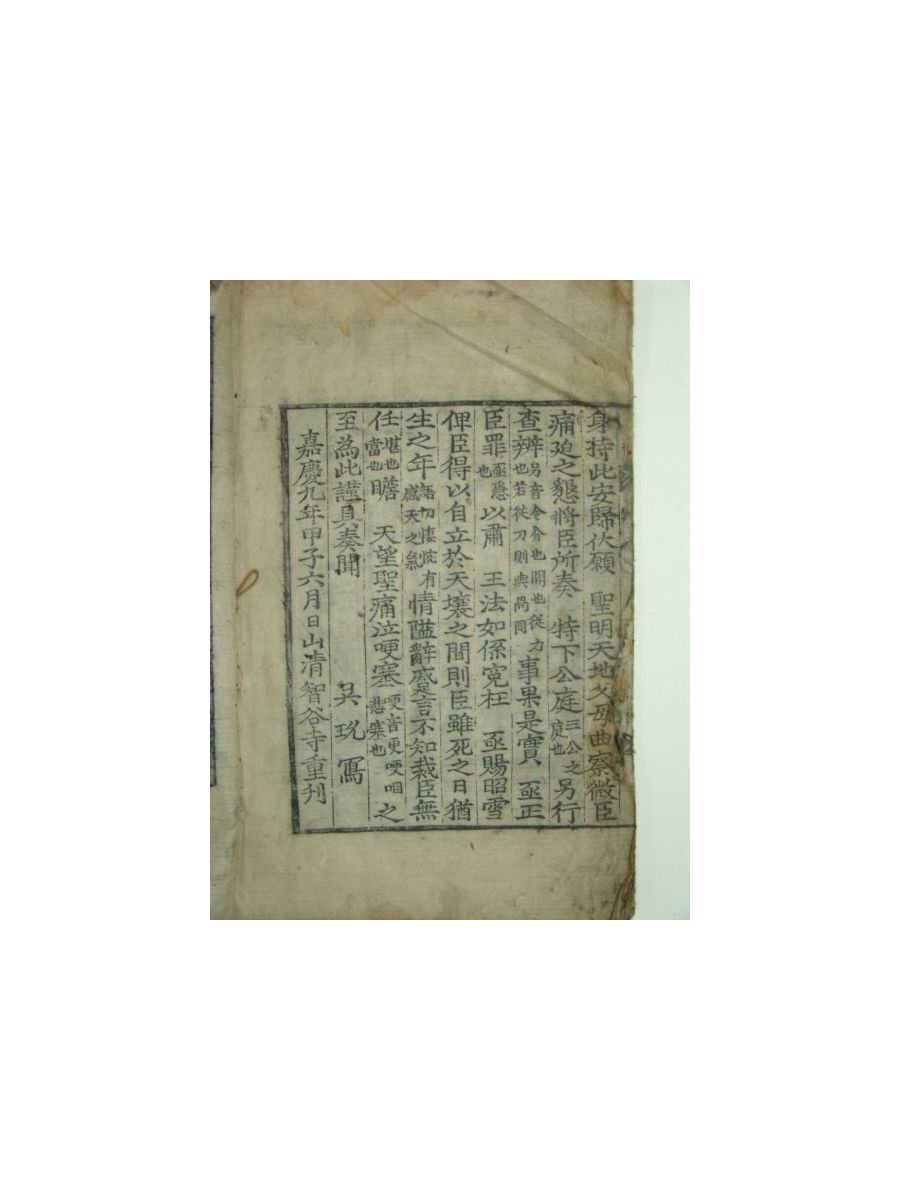 身持此安歸伏願　聖明天地父母曲察微臣
痛迫之懇將臣所奏　特下公庭三公之庭也另行
查辨另音令分也開也從力也若從刀則與咼同事果是實　亟正
臣罪亟急也以肅　王法如係冤枉　亟賜昭雪
俾臣得以自立於天壤之間則臣雖死之日猶
生之年語切悽惋有感天之氣情隘辭蹙言不知裁臣無
任堪也當也瞻　天望聖痛泣哽塞哽音更哽咽悲塞也之
至為此謹具奏聞　吳玧寫
嘉慶九年甲子六月日山清智谷寺重刊